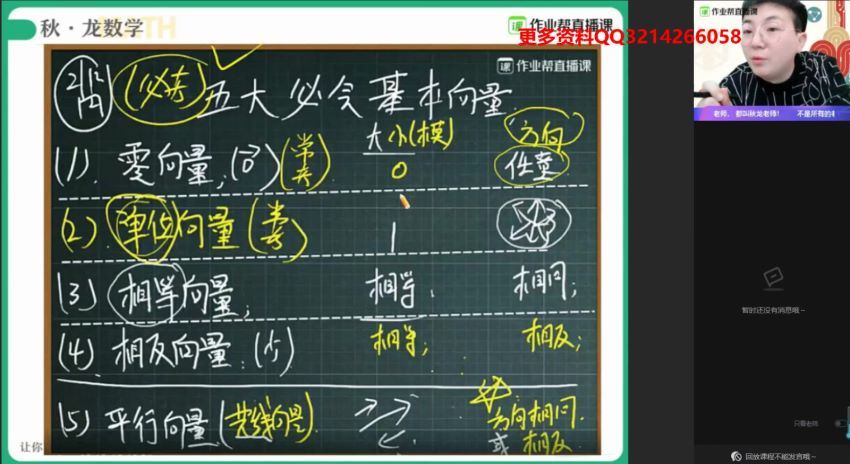 秋·龙数学
作业帮直播课
作业帮直播课
更多资料QQ3214266058
作业帮直播课
(必考) 五大必会基本向量
大小(模) 方向
(1). 零向量, (0) (常考) 0 任意
(2). 单位向量 (常考) 1
(3) 相等向量; 相等, 相同;
(4) 相反向量: 相等; 相反;
(5) 平行向量 (共线向量). 方向相同.
或 相反
让你
老师, 都叫秋龙老师! 不是所有的
暂时还没有消息哦~
只看老师
回放课程不能发言哦~